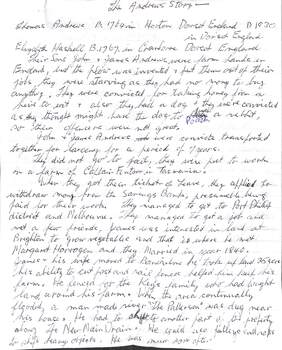 The Andrews Story —
Thomas Andrews B. 1769 in Horton Dorset England D 1830
in Dorset England
Elizabeth Haskell B. 1767 in Cranborne Dorset England
Their Sons John & James Andrews were farm hands in
England, and the plow was invented & put them out of their
jobs, they were starving as they had no money to buy
anything. They were convicted for taking honey from a
hive to eat & also they had a dog & they were convicted
as they thought might have the dog to a rabbit,
so their offences were not great.
John & James Andrews were convicts transported
together for larceny for a period of 7 years.
They did not go to jail, they were put to work
on a farm of Captain in Tasmania.
When they got their ticket of leave, they applied to
withdraw money from the Savings Bank, presumably being
paid for their work. They managed to get to Port Phillip
district and Melbourne. They managed to get a job and
met a few friends, James was interested in land at
Brighton to grow vegetables and that is where he met
Margaret Horrogan and they Married in year 1840.
James & his wife moved to took up land
his ability to cut post and rail fences helped him build his
farms. He fenced for the Keys family, who had bought
land around his farm. When the area continually
flooded, a man-made river "The Patterson" was dug near
his house. He had to shift to another part of his property
along the New Main Drain. He could use bullocks with ropes
to shift heavy objects. He was main son after